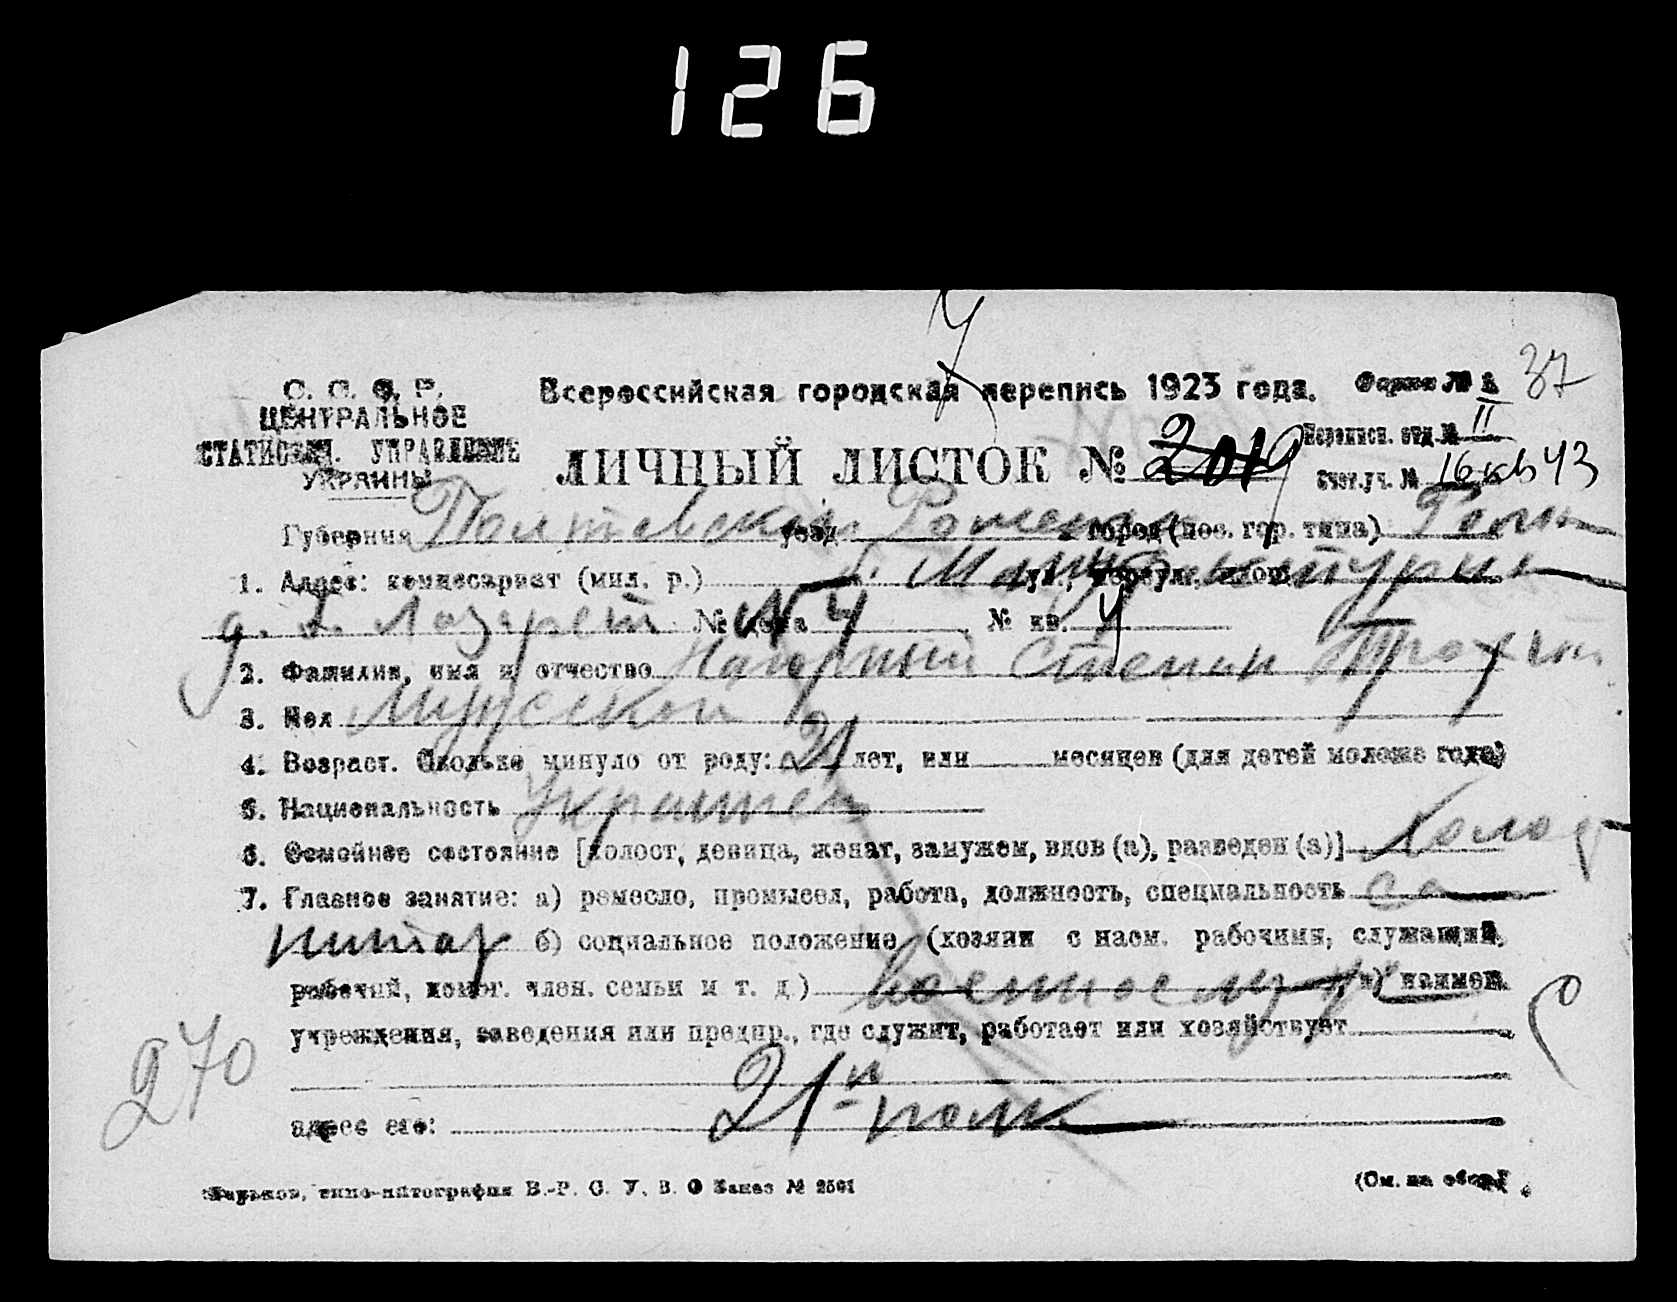 126
С. С. С. Р.
ЦЕНТРАЛЬНОЕ
СТАТИСТИЧ. УПРАВЛЕНИЕ
УКРАИНЫ
Всероссийская городская перепись 1923 года.
Форма № 37
Перепис. отд. № II
ЛИЧНЫЙ ЛИСТОК № 2019
Счет. уч. № 16 кв 43
Губерния Полтавская уезд город (пос. гор. типа)
1. Адрес: комиссариат (мил. р.) ул., переул., площ.
Лазарет № дома 4 № кв. 4
2. Фамилия, имя и отчество Нагорный Степан
3. Пол Мужской
4. Возраст. Сколько минуло от роду: 21 лет, или месяцев (для детей моложе года)
5. Национальность Украинец
6. Семейное состояние [холост, девица, женат, замужем, вдов (а), разведен (а)] Холост
7. Главное занятие: а) ремесло, промысел, работа, должность, специальность са
нитар б) социальное положение (хозяин с наем. рабочими, служащий,
рабочий, помог. член. семьи и т. д.) в) наимен.
учреждения, заведения или предпр., где служит, работает или хозяйствует
270
21й полк
адрес его:
Харьков, типо-литография В.-Р. С. У. В. О Заказ № 2561
(См. на обор.)